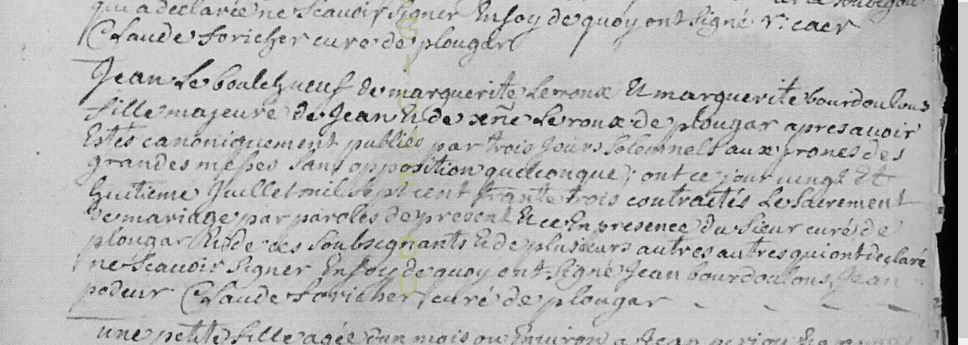 qui a declarée ne scavoir signer En foy de quoy ont signé y. caer
Claude foricher curé de plougar
Jean Le boulch neuf de marguerite Leroux Et marguerite bourdoulous
fille majeure de Jean Et de xñe Leroux de plougar apres avoir
Estes canoniquement publiés par trois jours solemnels aux prones des
grandes messes sans opposition quelconque; ont ce jour vingt Et
huitieme Juillet mil sept cent trante trois contractés Le sacrement
de mariage par paroles de present Et ce En presence du sieur curé de
plougar Et de ces soubsignants Et de plusieurs autres autres qui ont declaré
ne scavoir signer En foy de quoy ont signé Jean bourdoulous, Jean
podeur Claude foricher curé de plougar
une petite fille agée d'un mois ou Environ a Jean